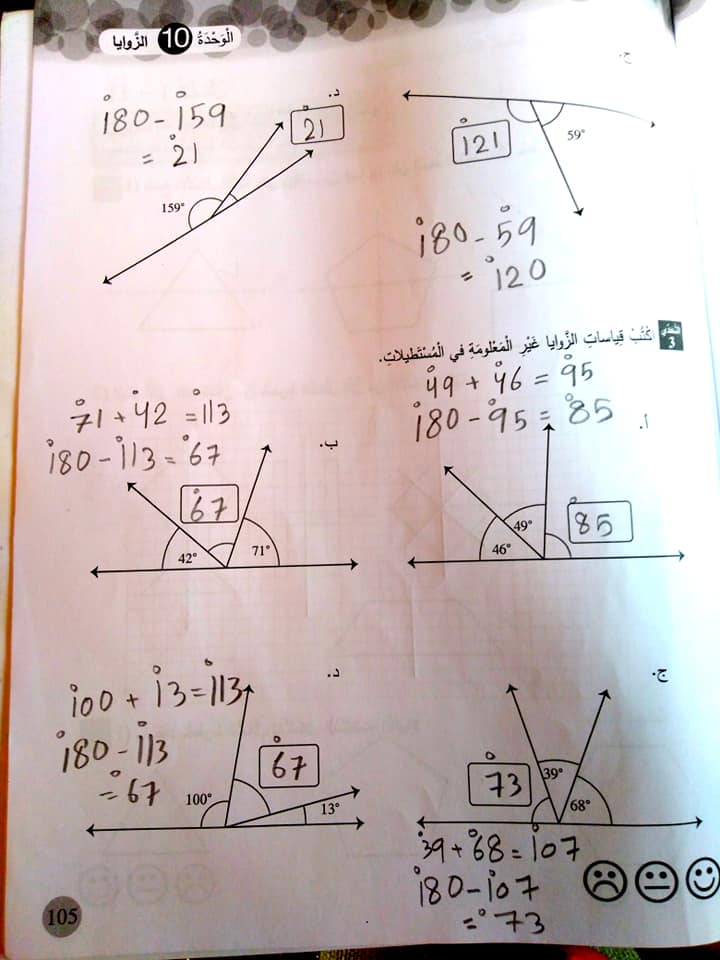 الْوَحْدَةُ 10 الزَّوايا
ج.
59°
121°
180° - 59°
= 120°
د.
180° - 159°
= 21°
21°
159°
التحدي 3 اُكْتُبْ قِياساتِ الزَّوايا غَيْرِ الْمَعْلومَةِ في الْمُسْتَطيلاتِ.
أ.
49° + 46° = 95°
180° - 95° = 85°
49°
46°
85°
ب.
71° + 42° = 113°
180° - 113° = 67°
67°
42°
71°
ج.
73°
39°
68°
39° + 68° = 107°
180° - 107°
= 73°
د.
100° + 13° = 113°
180° - 113°
= 67°
67°
100°
13°
105